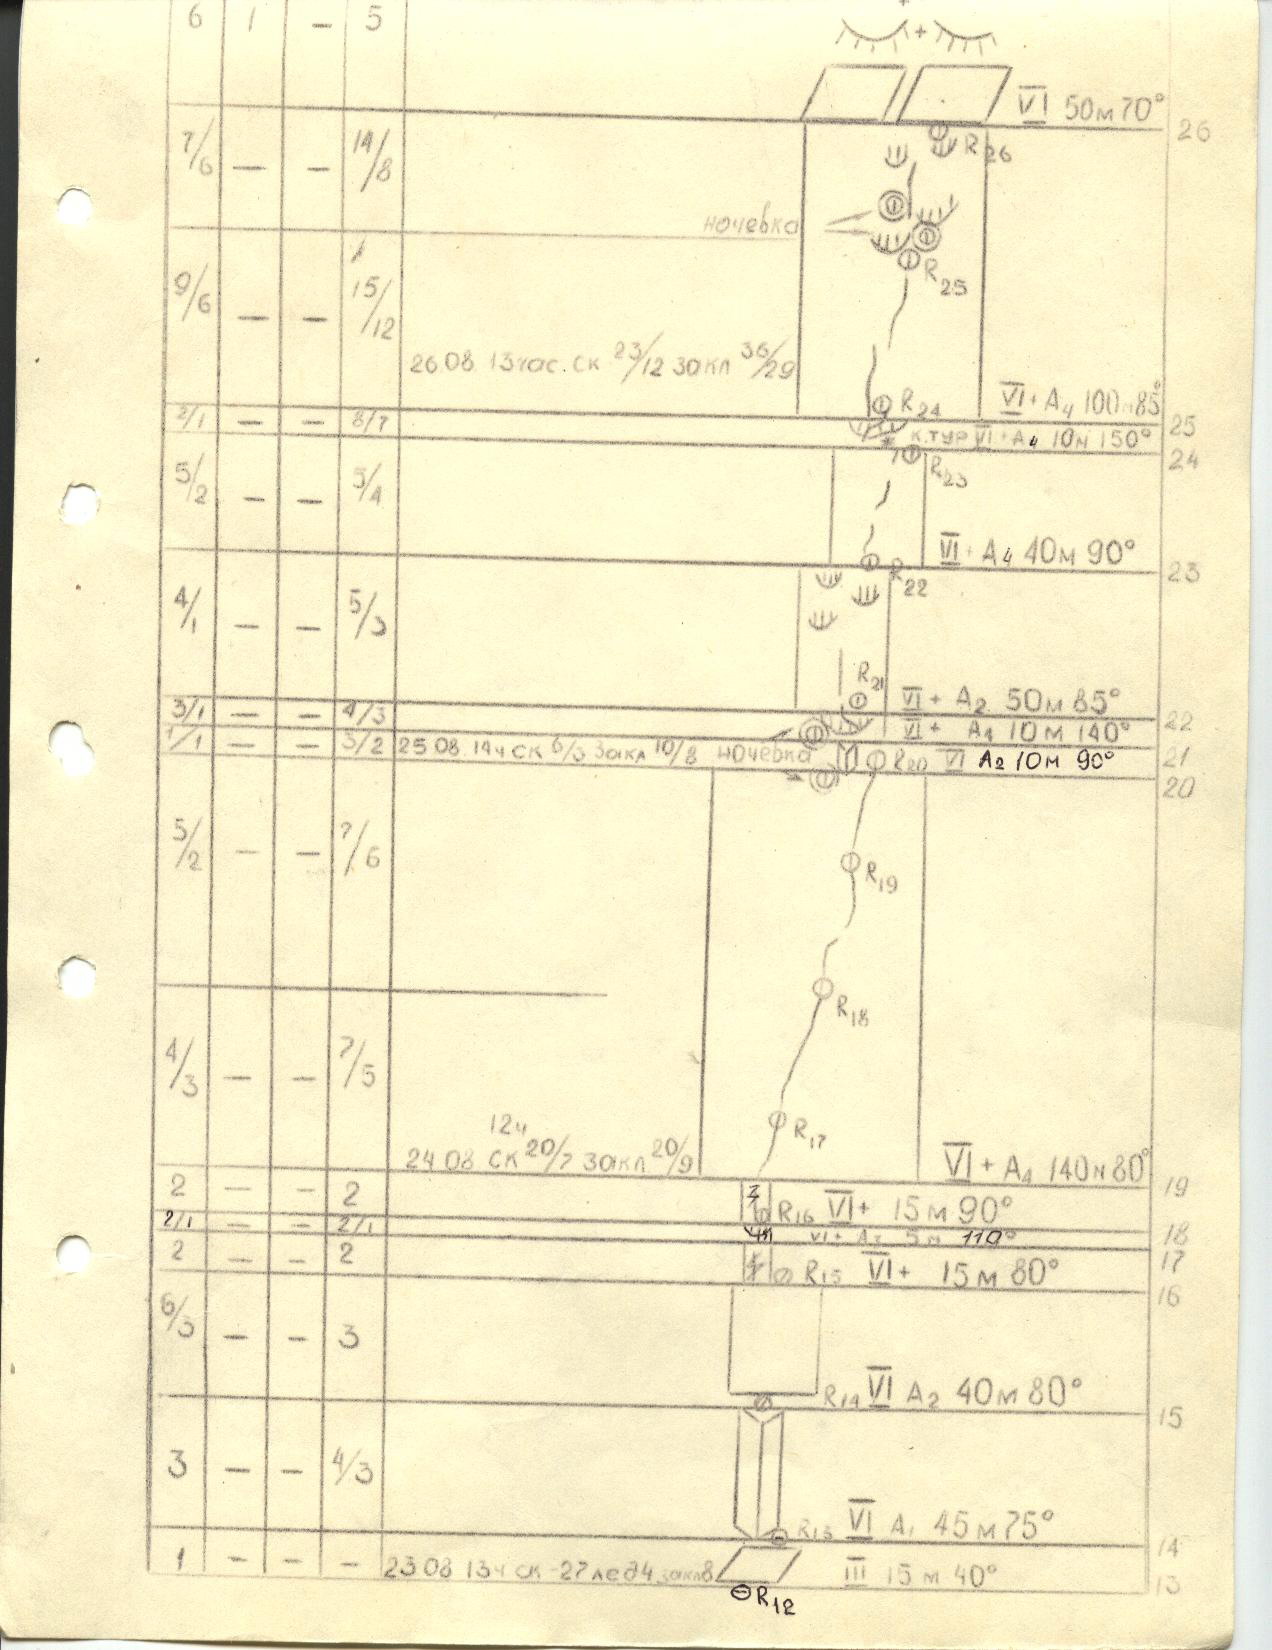 6 1 – 5
VI 50м 70°
26
7/6 – – 14/8
R26
ночевка
R25
9/6 – – 15/12
26 08 13час. СК 23/12 закл 36/29
R24 VI + A4 100м 85°
25
2/1 – – 8/7
К.ТУР VI + A4 10м 150°
24
R23
5/2 – – 5/4
VI + A4 40м 90°
23
R22
4/1 – – 5/3
R21
VI + A2 50м 85°
22
3/1 – – 4/3
VI + A4 10м 140°
21
1/1 – – 3/2 25 08 14ч СК 6/3 закл 10/8 ночевка R20 VI A2 10м 90°
20
5/2 – – 7/6
R19
R18
4/3 – – 7/5
R17
12ч
24 08 СК 20/7 закл 20/9
VI + A4 140м 80°
19
2 – – 2
R16 VI+ 15м 90°
18
2/1 – – 2/1
5м 110°
17
2 – – 2
R15 VI+ 15м 80°
16
6/3 – – 3
R14 VI A2 40м 80°
15
3 – – 4/3
R13 VI A1 45м 75°
14
1 – – – 23 08 13ч СК - 27 лед 4 закл 8 III 15м 40°
13
R12